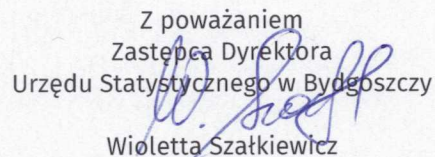 Z poważaniem
Zastępca Dyrektora
Urzędu Statystycznego w Bydgoszczy
Wioletta Szałkiewicz